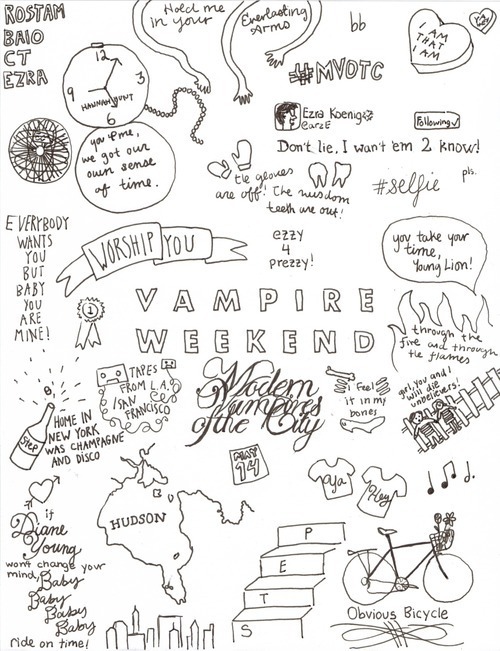 ROSTAM
BAIO
CT
EZRA
Hold me
in your
Everlasting
Arms
bb
I AM
THAT
I AM
#MVOTC
12
3
6
9
HANNAH HUNT
you & me,
we got our
own sense
of time.
Ezra Koenig
@arzE
Following
Don't lie, I wan't 'em 2 know!
the gloves
are off! The wisdom
teeth are out!
#selfie
pls.
EVERYBODY
WANTS
YOU
BUT
BABY
YOU
ARE
MINE!
WORSHIP YOU
ezzy
4
prezzy!
you take your
time,
Young Lion!
VAMPIRE
WEEKEND
1
through the
fire and through
the flames
TAPES
FROM L.A.
/SAN
FRANCISCO
Modern
Vampires
of the City
I Feel
it in my
bones
girl, You and I
will die
unbelievers!
Step
HOME IN
NEW YORK
WAS CHAMPAGNE
AND DISCO
MAY
14
Ya
Hey
if
Diane
Young
won't change your
mind, Baby
Baby
Baby
Baby
ride on time!
HUDSON
P
E
T
S
Obvious Bicycle